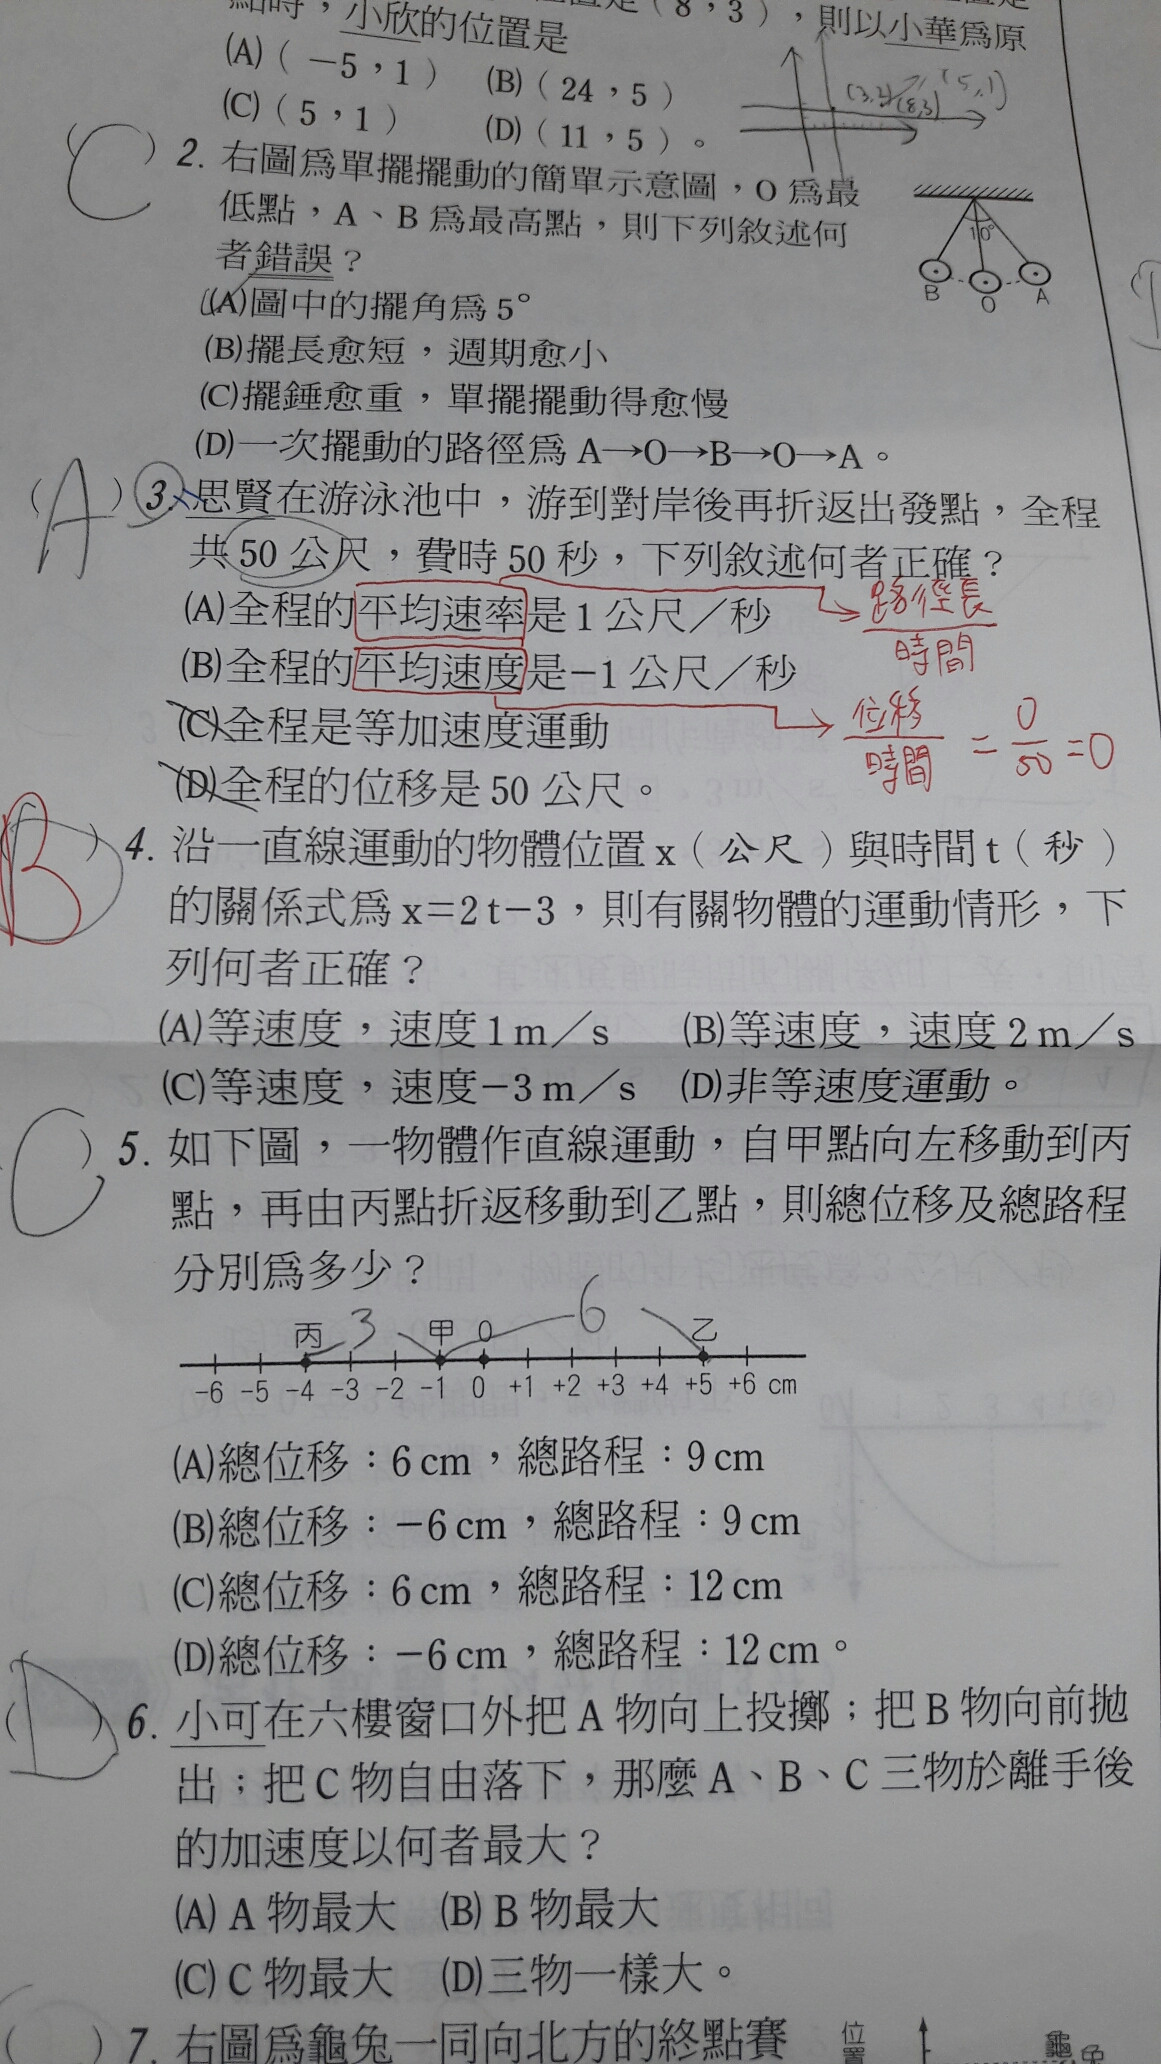 點時，小欣的位置是（8，3），則以小華為原
(A)（－5，1） (B)（24，5）
(C)（5，1） (D)（11，5）。
(3,2) (8,3) (5,1)
C
（ ）2. 右圖為單擺擺動的簡單示意圖，O 為最
低點，A、B 為最高點，則下列敘述何
者錯誤？
10°
B O A
(A)圖中的擺角為 5°
(B)擺長愈短，週期愈小
(C)擺錘愈重，單擺擺動得愈慢
(D)一次擺動的路徑為 A→O→B→O→A。
A
（ ）3. 思賢在游泳池中，游到對岸後再折返出發點，全程
共 50 公尺，費時 50 秒，下列敘述何者正確？
(A)全程的平均速率是 1 公尺／秒
路徑長
時間
(B)全程的平均速度是－1 公尺／秒
(C)全程是等加速度運動
位移
時間 = 0/50 = 0
(D)全程的位移是 50 公尺。
B
）4. 沿一直線運動的物體位置 x（公尺）與時間 t（秒）
的關係式為 x＝2 t－3，則有關物體的運動情形，下
列何者正確？
(A)等速度，速度 1 m／s (B)等速度，速度 2 m／s
(C)等速度，速度－3 m／s (D)非等速度運動。
C
）5. 如下圖，一物體作直線運動，自甲點向左移動到丙
點，再由丙點折返移動到乙點，則總位移及總路程
分別為多少？
3 6
丙 甲 0 乙
-6 -5 -4 -3 -2 -1 0 +1 +2 +3 +4 +5 +6 cm
(A)總位移：6 cm，總路程：9 cm
(B)總位移：－6 cm，總路程：9 cm
(C)總位移：6 cm，總路程：12 cm
(D)總位移：－6 cm，總路程：12 cm。
D
（ ）6. 小可在六樓窗口外把 A 物向上投擲；把 B 物向前拋
出；把 C 物自由落下，那麼 A、B、C 三物於離手後
的加速度以何者最大？
(A) A 物最大 (B) B 物最大
(C) C 物最大 (D)三物一樣大。
（ ）7. 右圖為龜兔一同向北方的終點賽
位置
龜 兔